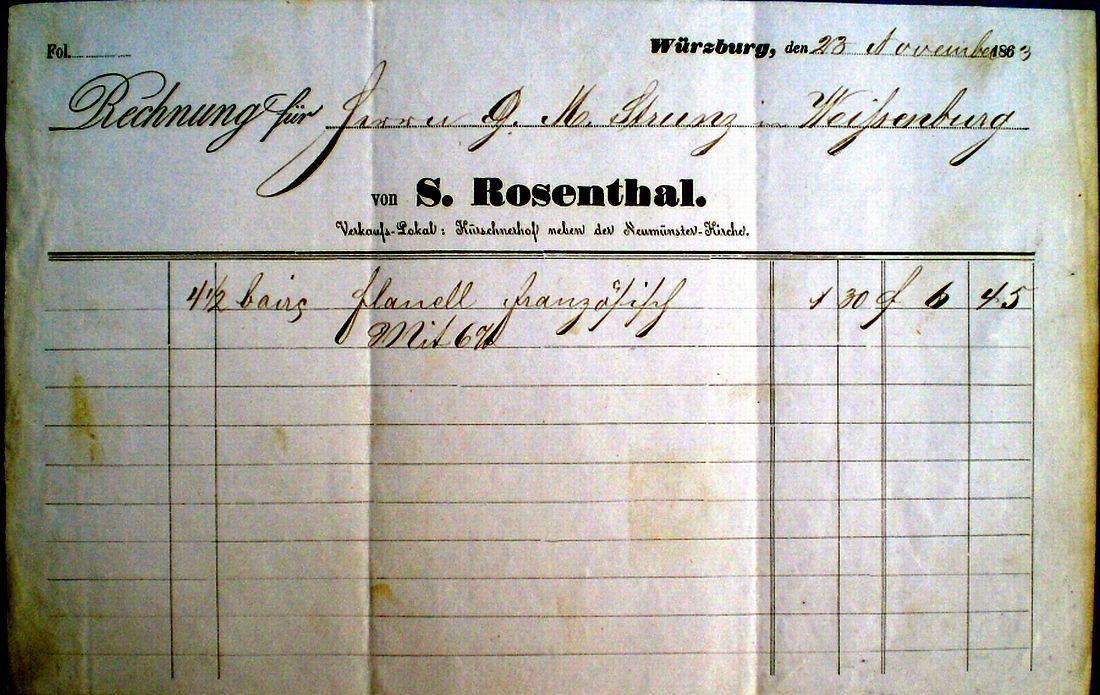 Fol.
Würzburg, den 23 November 1863
Rechnung für Herrn G. M. Strunz in Weißenburg
von S. Rosenthal.
Verkaufs-Lokal: Kürschnerhof neben der Neumünster-Kirche.
4 1/2 bair flanell französisch 1 30 f 6 45
Mit 6